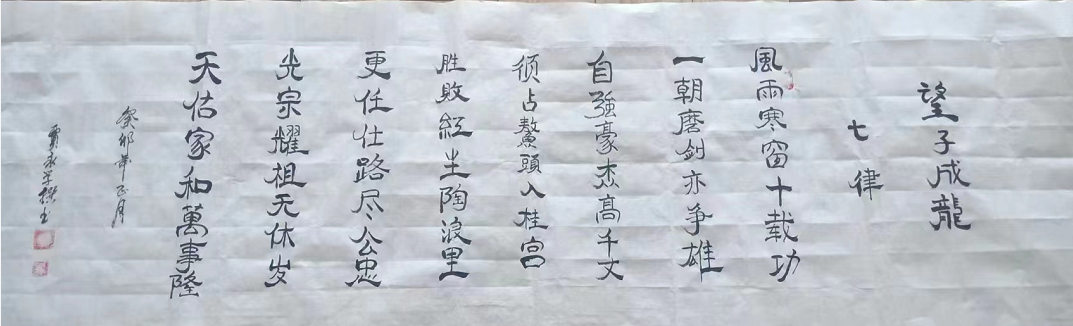 望子成龍
七律
風雨寒窗十载功
一朝磨剑亦争雄
自強豪杰高千丈
须占鰲頭入桂宫
胜敗紅尘陶浪里
更任仕路尽公忠
光宗耀祖无休岁
天估家和萬事隆
癸卯年正月